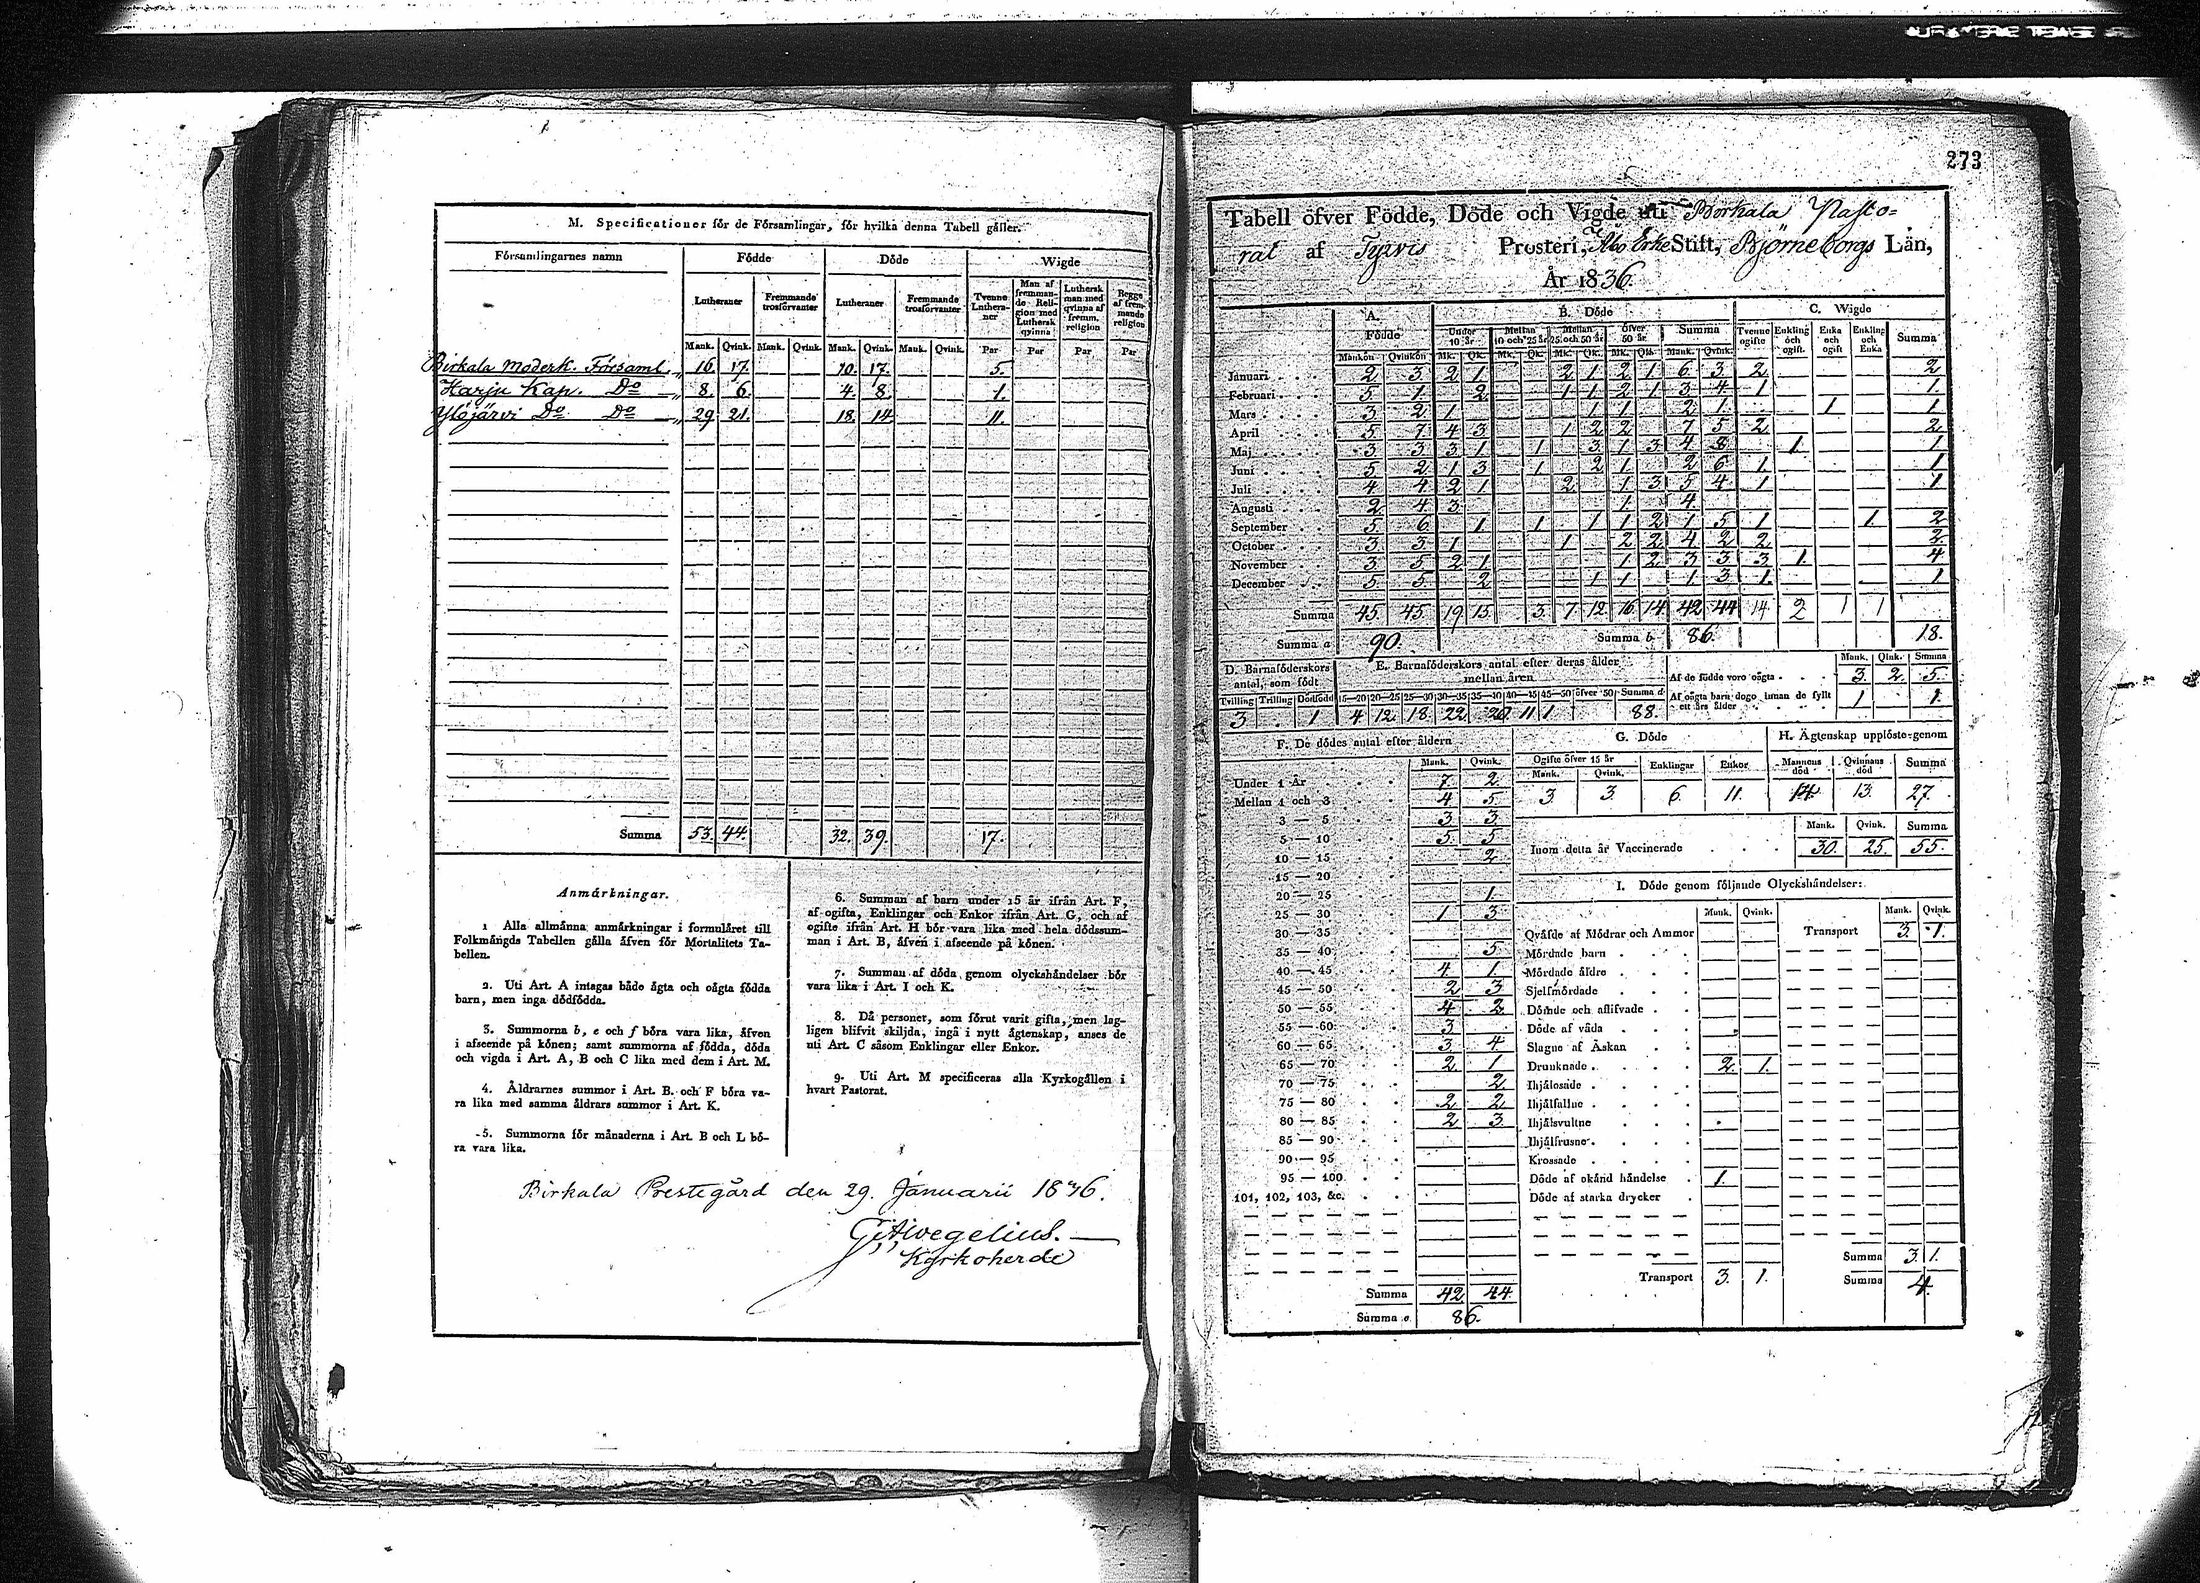 M. Specificationer för de Församlingar, för hvilka denna Tabell gäller.
Församlingarnes namn Födde Döde Wigde
Lutheraner Fremmande trosförvanter Lutheraner Fremmande trosförvanter Tvenne Lutheraner Man af fremmande Religion med Luthersk qvinna Luthersk man med qvinna af fremm. religion Begge af fremmande religion
Mank. Qvink. Mank. Qvink. Mank. Qvink. Mank. Qvink. Par Par Par Par
Birkala Moderk. Församl. 16. 17. 10. 17. 5.
Harju Kap. Do 8. 6. 4. 8. 1.
Ylöjärvi Do Do 29. 21. 18. 14. 11.
Summa 53. 44. 32. 39. 17.
Anmärkningar.
1 Alla allmänna anmärkningar i formuläret till
Folkmängds Tabellen gälla äfven för Mortalitets Ta-
bellen.
2. Uti Art. A intagas både ägta och oägta födda
barn, men inga dödfödda.
3. Summorna b, e och f böra vara lika, äfven
i afseende på könen; samt summorna af födda, döda
och vigda i Art. A, B och C lika med dem i Art. M.
4. Åldrarnes summor i Art. B. och F böra va-
ra lika med samma åldrars summor i Art. K.
5. Summorna för månaderna i Art. B och L bö-
ra vara lika.
6. Summan af barn under 15 år ifrån Art. F,
af ogifta, Enklingar och Enkor ifrån Art. G, och af
ogifte ifrån Art. H bör vara lika med hela dödssum-
man i Art. B, äfven i afseende på könen.
7. Summan af döda genom olyckshändelser bör
vara lika i Art. I och K.
8. Då personer, som förut varit gifta, men lag-
ligen blifvit skiljda, ingå i nytt ägtenskap, anses de
uti Art. C såsom Enklingar eller Enkor.
9. Uti Art. M specificeras alla Kyrkogällen i
hvart Pastorat.
Birkala Prestegård den 29. Januarii 1836.
Kyrkoherde
273
Tabell öfver Födde, Döde och Vigde uti Birkala Pasto-
rat af Tyrvis Prosteri, Åbo Erke Stift, Björneborgs Län,
År 1836.
A. Födde B. Döde C. Wigde
Under 10 år Mellan 10 och 25 år Mellan 25 och 50 år öfver 50 år Summa Tvenne ogifte Enkling och ogift Enka och ogift Enkling och Enka Summa
Mankön Qvinkön Mk. Qk. Mk. Qk. Mk. Qk. Mk. Qk. Mank. Qvink.
Januari 2 3 2 1 2 1 2 1 6 3 2 2
Februari 5 1 2 1 1 2 1 3 4 1 1.
Mars 3 2 1 1 1 2 1 1 1
April 5 7 4 3 1 2 2 7 5 2 2
Maj 3 3 3 1 1 3 1 3 4 8 1 1
Juni 5 2 1 3 1 2 1 2 6 1 1
Juli 4 4 2 1 2 1 3 5 4 1 1
Augusti 2 4 3 1 4
September 5 6 1 1 1 1 2 1 5 1 1 2
October 3 3 1 1 2 2 4 2 2 2
November 3 5 2 1 1 2 3 3 3 1 4
December 5 5 2 1 1 1 3 1 1
Summa 45 45 19 15 3 7 12 16 14 42 44 14 2 1 1
Summa a 90. Summa b 86. 18.
D. Barnaföderskors antal, som födt E. Barnaföderskors antal efter deras ålder mellan åren Mank. Qink. Summa
Af de födde voro oägta 3. 2. 5.
Tvilling Trilling Dödfödd 15—20 20—25 25—30 30—35 35—40 40—45 45—50 öfver 50 Summa d
Af oägta barn dogo innan de fyllt ett års ålder 1 1.
3 1 4 12 18 22 20 11 1 88.
F. De dödes antal efter åldern
Mank. Qvink.
Under 1 År 7. 2
Mellan 1 och 3 4 5
3 — 5 3 3
5 — 10 5 5
10 — 15 2
15 — 20
20 — 25 1.
25 — 30 1 3
30 — 35
35 — 40 5
40 — 45 4 1
45 — 50 2 3
50 — 55 4 2
55 — 60 3
60 — 65 3 4
65 — 70 2 1
70 — 75 2
75 — 80 2 2
80 — 85 2 3.
85 — 90
90 — 95
95 — 100
101, 102, 103, &c.
Summa 42 44.
Summa e 86.
G. Döde H. Ägtenskap upplöste genom
Ogifte öfver 15 år Enklingar Enkor Mannens död Qvinnans död Summa
Mank. Qvink.
3. 3. 6. 11. 14. 13. 27.
Mank. Qvink. Summa
Inom detta år Vaccinerade 30. 25. 55.
I. Döde genom följande Olyckshändelser:
Mank. Qvink. Mank. Qvink.
Qväfde af Mödrar och Ammor Transport 3. 1.
Mördade barn
Mördade äldre
Sjelfmördade
Dömde och aflifvade
Döde af våda
Slagne af Åskan
Drunknade 2. 1.
Ihjälosade
Ihjälfallne
Ihjälsvultne
Ihjälfrusne
Krossade
Döde af okänd händelse 1.
Döde af starka drycker
Summa 3 1.
Transport 3. 1. Summa 4.